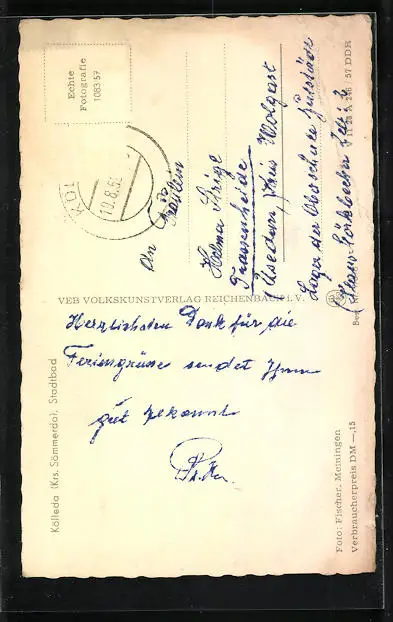 Echte
Fotografie
1083 57
10.8.5
An
Fräulein
Helma
Trassenheide
(Usedom, Kreis Wolgast
Lager der Oberschule
VEB VOLKSKUNSTVERLAG REICHENBACH i. V.
Herzlichsten Dank für die
Feriengrüsse sendet Ihnen
gut bekannt
Kölleda (Krs. Sömmerda), Stadtbad
Foto: Fischer, Meiningen
Verbraucherpreis DM —,15